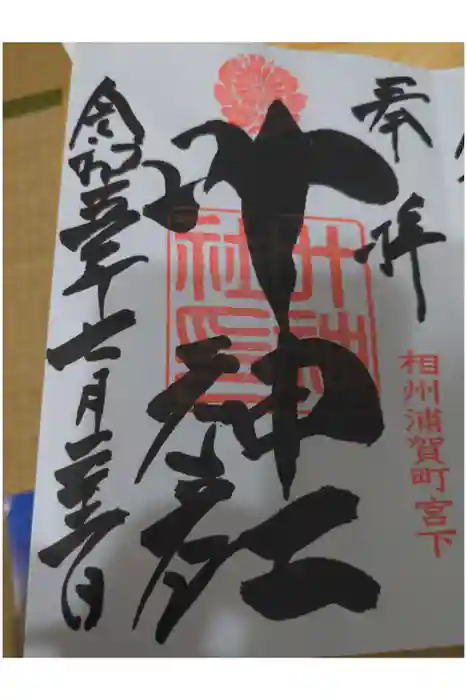 奉拝
相州浦賀町宮下
叶神社
叶神社印
令和五年七月二十日